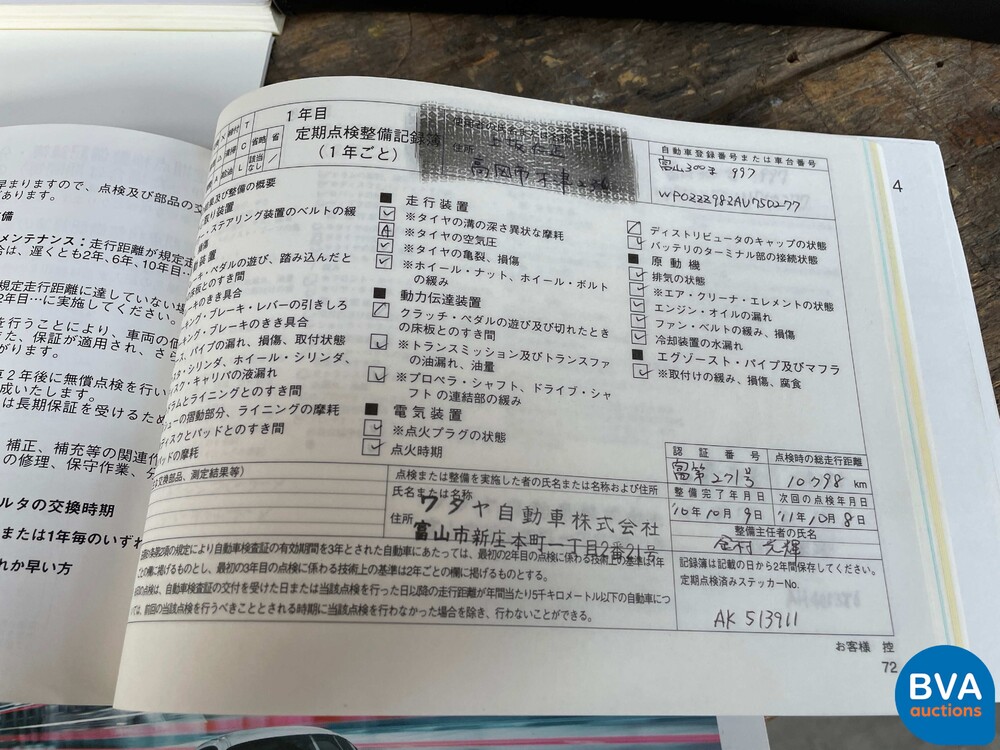 早まりますので、点検及び部品の交
があります。
備
メンテナンス：走行距離が規定走
合は、遅くとも2年、6年、10年目…
規定走行距離に達していない場
2年目…に実施してください。
を行うことにより、車両の価
また、保証が適用され、さら
がります。
立２年後に無償点検を行い
成いたします。
は長期保証を受けるため
補正、補充等の関連作
の修理、保守作業、分
ルタの交換時期
または1年毎のいずれ
れか早い方
1年目
定期点検整備記録簿
（1年ごと）
T
C
省略
省
L
該当なし
／
住所
高岡市木津
自動車登録番号または車台番号
富山300ま 997
WP0ZZZ98ZAU750277
4
結果及び整備の概要
取り装置
・ステアリング装置のベルトの緩
装置
キ・ペダルの遊び、踏み込んだと
床板とのすき間
キのきき具合
キング・ブレーキ・レバーの引きしろ
キング・ブレーキのきき具合
ス、パイプの漏れ、損傷、取付状態
スタ・シリンダ、ホイール・シリンダ、
ィスク・キャリパの液漏れ
ドラムとライニングとのすき間
シューの摺動部分、ライニングの摩耗
ディスクとパッドとのすき間
パッドの摩耗
■ 走行装置
✓ ※タイヤの溝の深さ異状な摩耗
A ※タイヤの空気圧
✓ ※タイヤの亀裂、損傷
✓ ※ホイール・ナット、ホイール・ボルト
の緩み
■ 動力伝達装置
／ クラッチ・ペダルの遊び及び切れたとき
の床板とのすき間
✓ ※トランスミッション及びトランスファ
の油漏れ、油量
✓ ※プロペラ・シャフト、ドライブ・シャ
フトの連結部の緩み
■ 電気装置
✓ ※点火プラグの状態
✓ 点火時期
／ ディストリビュータのキャップの状態
✓ バッテリのターミナル部の接続状態
■ 原動機
✓ 排気の状態
✓ ※エア・クリーナ・エレメントの状態
✓ エンジン・オイルの漏れ
✓ ファン・ベルトの緩み、損傷
✓ 冷却装置の水漏れ
■ エグゾースト・パイプ及びマフラ
✓ ※取付けの緩み、損傷、腐食
交換部品、測定結果等）
点検または整備を実施した者の氏名または名称および住所
氏名または名称
ワダヤ自動車株式会社
住所
富山市新庄本町一丁目2番21号
認証番号
点検時の総走行距離
富第271号
10798 km
整備完了年月日
次回の点検年月日
'10年10月9日
'11年10月8日
整備主任者の氏名
金村光輝
記録簿は記載の日から2年間保存してください。
定期点検済みステッカーNo.
AK 513911
の規定により自動車検査証の有効期間を3年とされた自動車にあたっては、最初の2年目の点検に係わる技術上の基準は1年
ごとの欄に掲げるものとし、最初の3年目の点検に係わる技術上の基準は2年ごとの欄に掲げるものとする。
の点検は、自動車検査証の交付を受けた日または当該点検を行った日以降の走行距離が年間当たり5千キロメートル以下の自動車につ
ては、前回の当該点検を行うべきこととされる時期に当該点検を行わなかった場合を除き、行わないことができる。
お客様 控
72
BVA
auctions